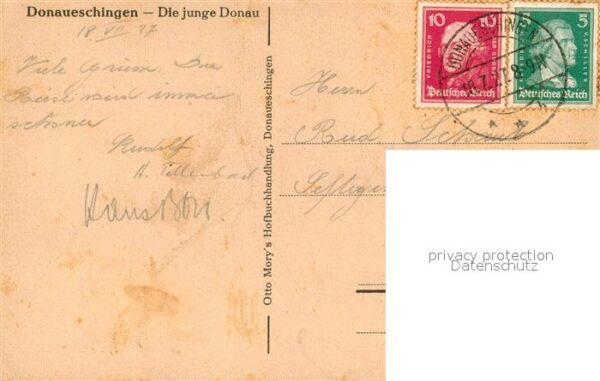 Donaueschingen — Die junge Donau
18 VII 27
Viele Grüsse. Die
Reise wird immer
schöner
Rudolf
Otto Mory's Hofbuchhandlung, Donaueschingen
Herrn
Rud
10 10
FRIEDRICH DER GROSSE
Deutsches Reich
5 5
F.V.SCHILLER
Deutsches Reich
DONAUESCHINGEN
privacy protection
Datenschutz